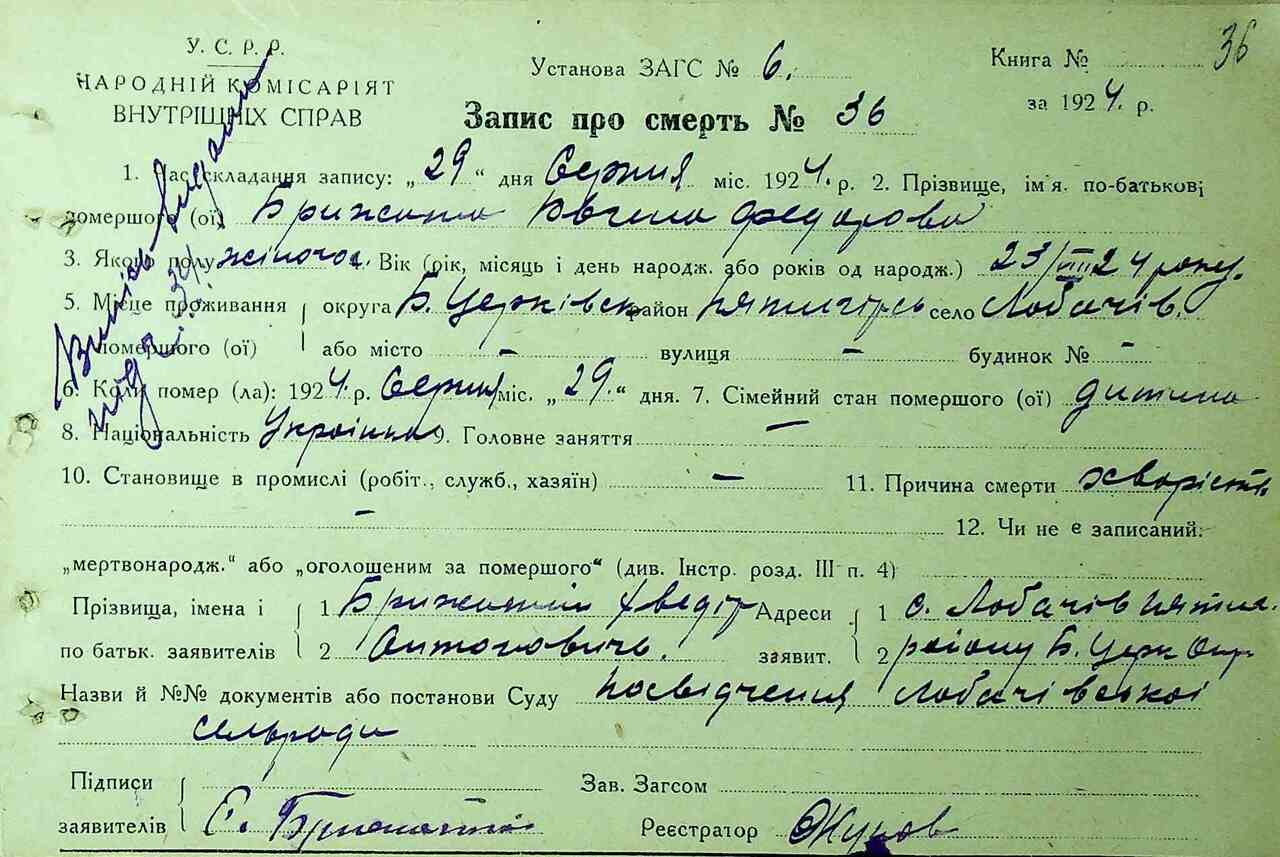 36
У. С. Р. Р.
НАРОДНІЙ КОМІСАРІЯТ
ВНУТРІШНІХ СПРАВ
Установа ЗАГС № 6.
Книга №
за 1924. р.
Запис про смерть № 36
1. Час складання запису: „29“ дня Серпня міс. 1924. р. 2. Прізвище, ім'я. по-батькові
помершого (ої) Брижата Федорова
3. Якого полу жіночог. Вік (рік, місяць і день народж. або років од народж.) 23/VIII 24 року.
5. Місце проживання округа Б. Церківськ район Пятигірсь село Лобачів.
помершого (ої) або місто – вулиця – будинок № –
6. Коли помер (ла): 1924. р. Серпня міс. „29.“ дня. 7. Сімейний стан помершого (ої) дитина
8. Національність Украінка 9. Головне заняття –
10. Становище в промислі (робіт., служб., хазяїн) – 11. Причина смерти хворість
– 12. Чи не є записаний:
„мертвонародж.“ або „оголошеним за помершого“ (див. Інстр. розд. III п. 4)
Прізвища, імена і 1 Брижатий Хведір Адреси 1 с. Лобачів Пятиг.
по батьк. заявителів 2 Антоновичь. заявит. 2 району Б. Церк Окр
Назви й №№ документів або постанови Суду посвідчення Лобачівськоі
сельради
Підписи Зав. Загсом
заявителів Реєстратор